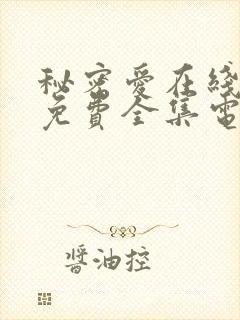 秘密愛在綫
免費全集電
醬油控